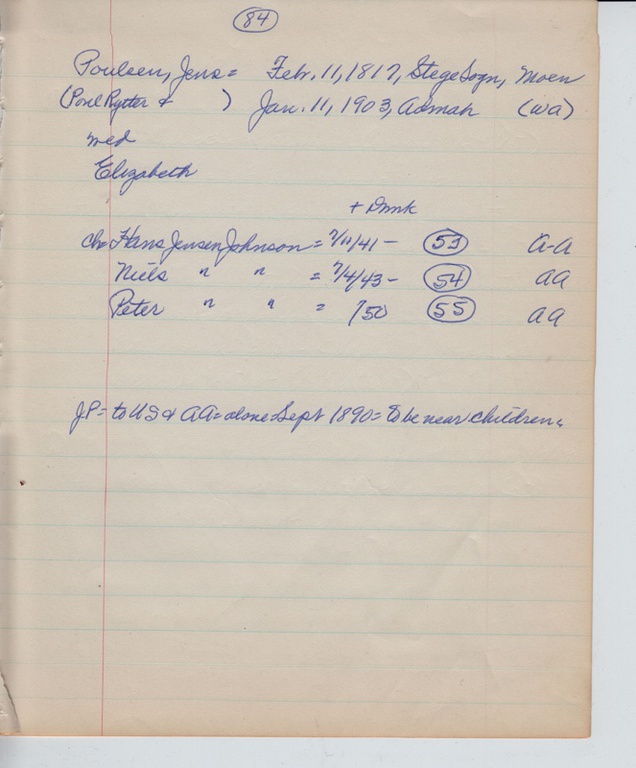 84
Poulsen, Jens = Feb. 11, 1817, Stege Sogn, Moen
(Poul Rytter & ) Jan. 11, 1903, Admah (wa)
med
Elizabeth
+ Dmk
ch. Hans Jensen Johnson = 7/11/41 - 53 a-a
Niels " " = 7/4/43 - 54 aa
Peter " " = /50 55 aa
JP = to US & AA = alone Sept 1890 = to be near children.